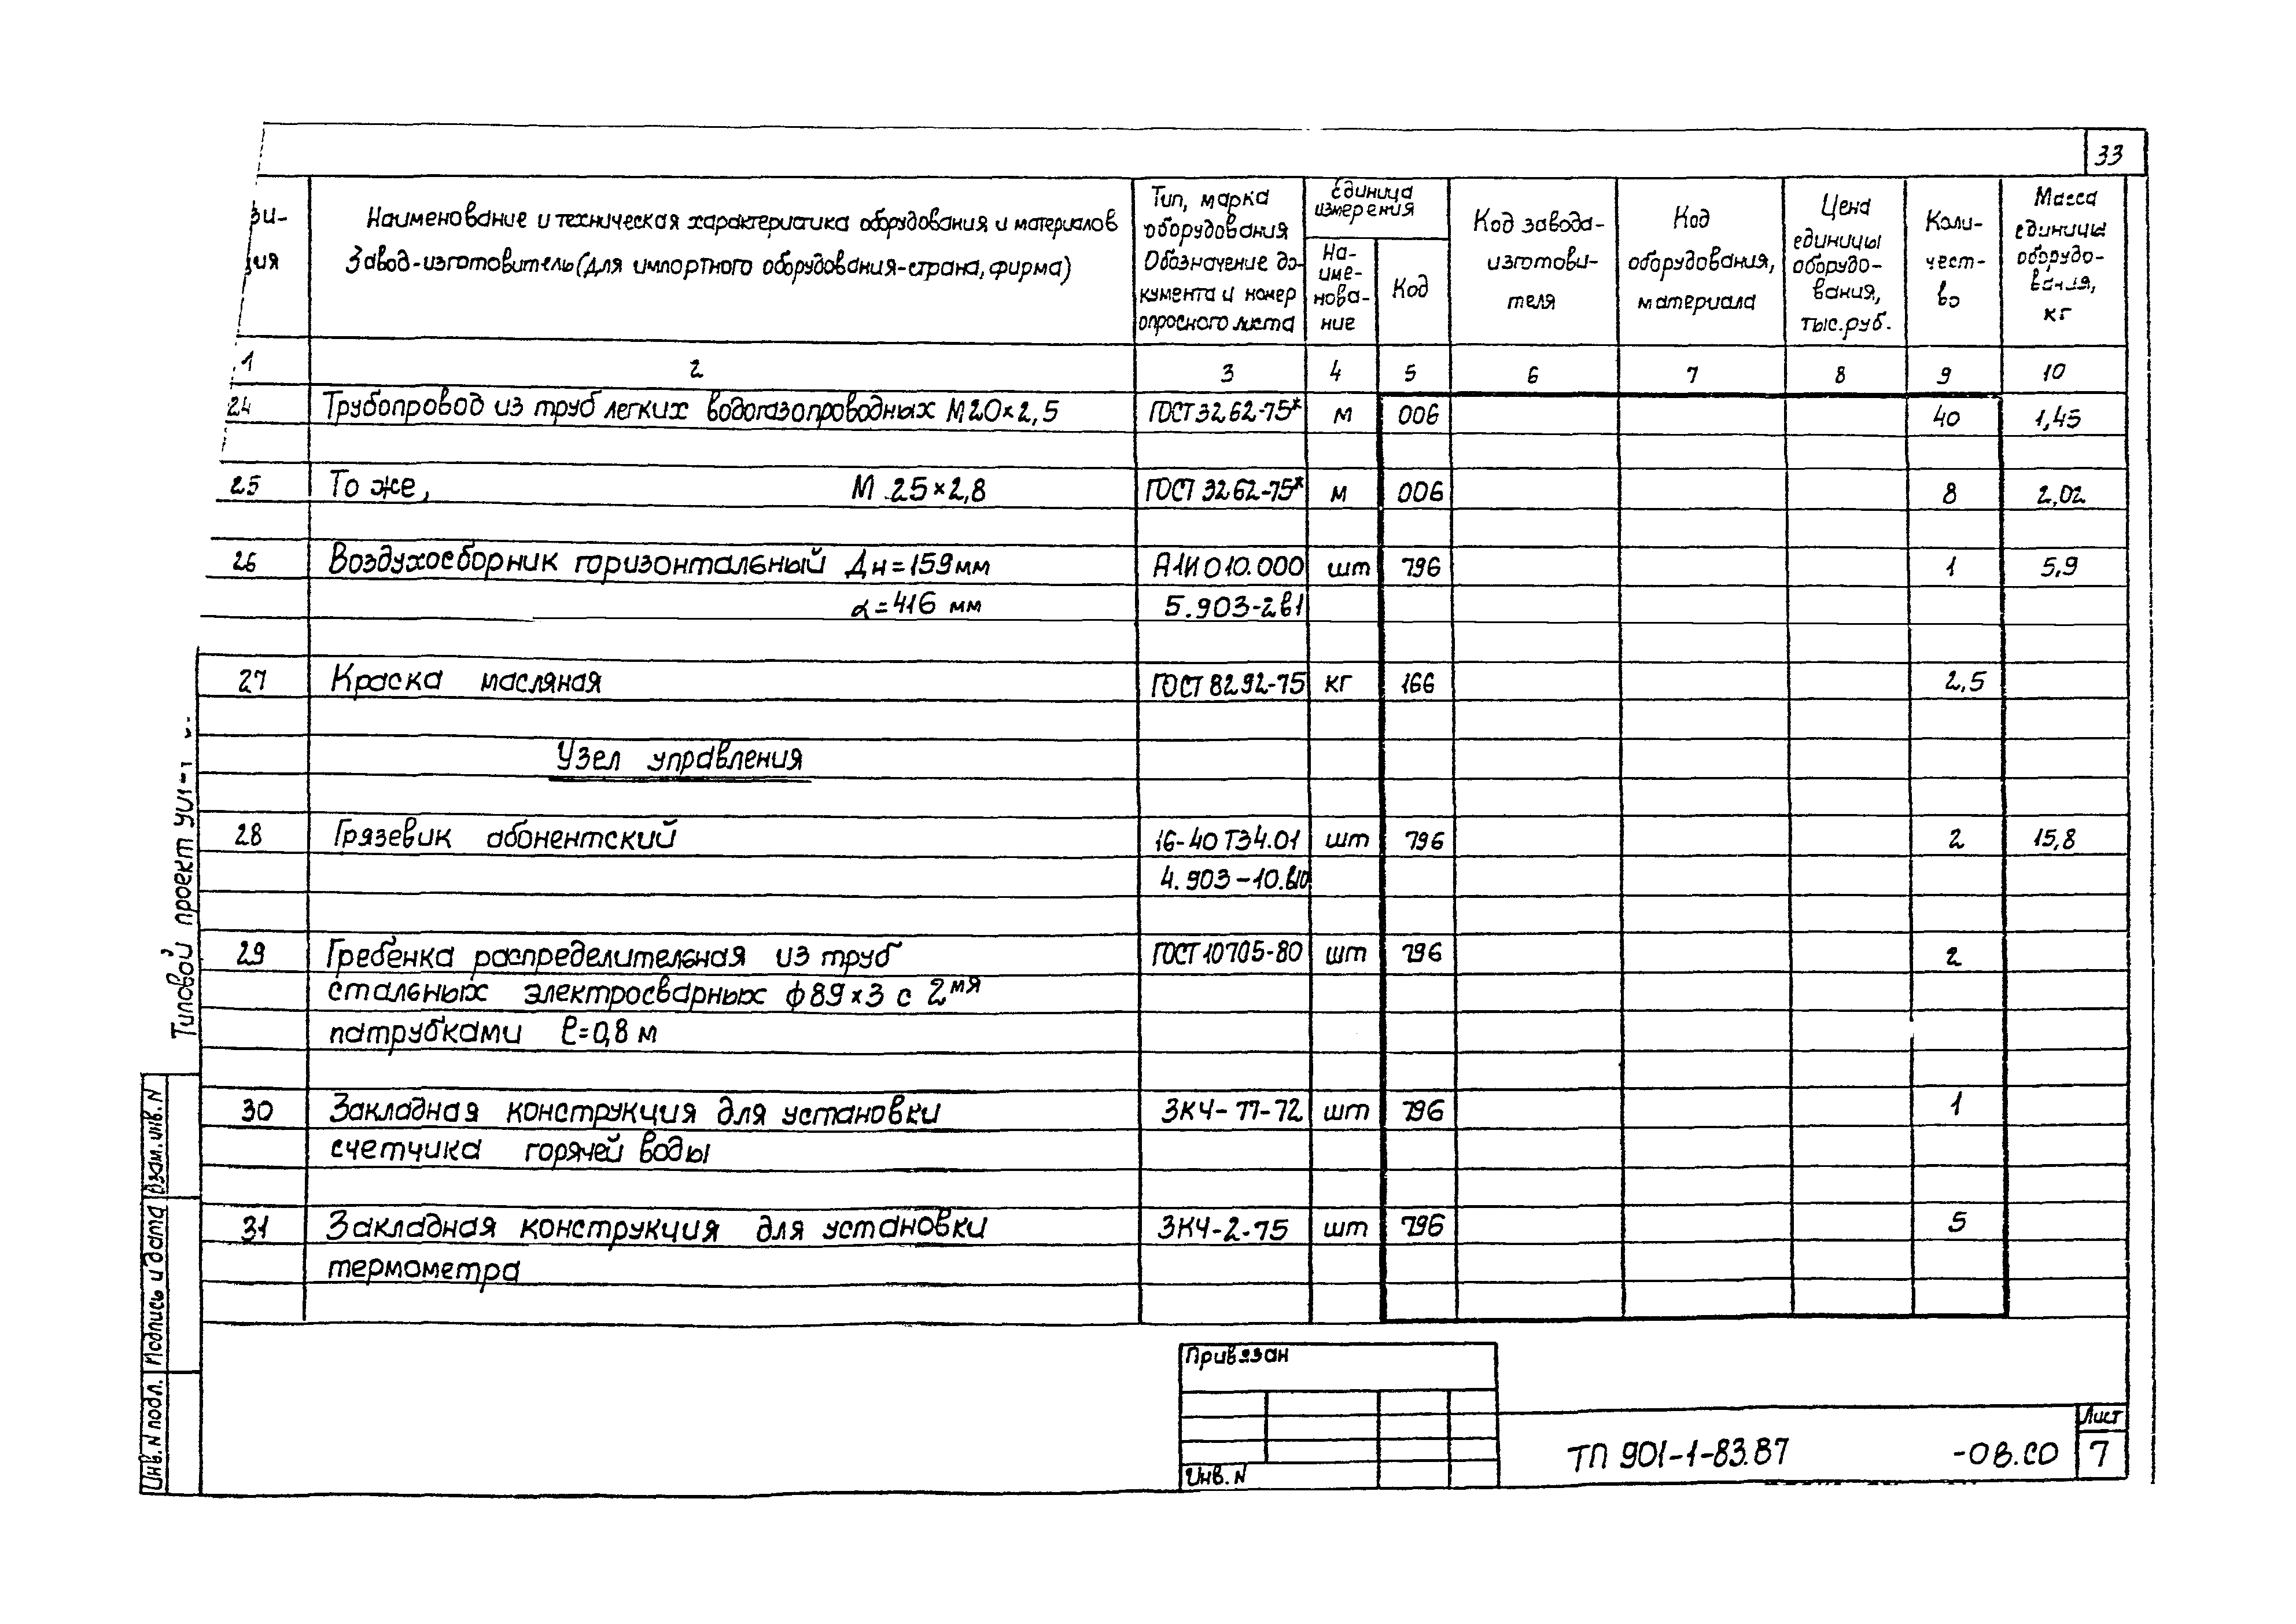 33
зи-
ия
Наименование и техническая характеристика оборудования и материалов
Завод-изготовитель (для импортного оборудования-страна, фирма)
Тип, марка
оборудования
Обозначение до-
кумента и номер
опросного листа
Единица
измерения
На-
име-
нова-
ние
Код
Код завода-
изготови-
теля
Код
оборудования,
материала
Цена
единицы
оборудо-
вания,
тыс.руб.
Коли-
чест-
во
Масса
единицы
оборудо-
вания,
кг
1 2 3 4 5 6 7 8 9 10
24 Трубопровод из труб легких водогазопроводных М20×2,5 ГОСТ 3262-75* м 006 40 1,45
25 То же, М 25×2,8 ГОСТ 3262-75* м 006 8 2,02
26 Воздухосборник горизонтальный Дн=159мм А1И010.000 шт 796 1 5,9
α=416 мм 5.903-2в1
27 Краска масляная ГОСТ 8292-75 кг 166 2,5
Узел управления
28 Грязевик абонентский 16-40 Т34.01 шт 796 2 15,8
4.903-10.в10
29 Гребенка распределительная из труб ГОСТ 10705-80 шт 796 2
стальных электросварных ф89×3 с 2мя
патрубками ℓ=0,8 м
30 Закладная конструкция для установки ЗК4-77-72 шт 796 1
счетчика горячей воды
31 Закладная конструкция для установки ЗК4-2-75 шт 796 5
термометра
Типовой проект
Взам.инв.N
Подпись и дата
Инв.N подл.
Привязан
Инв.N
ТП 901-1-83.87 -ОВ.СО
Лист
7